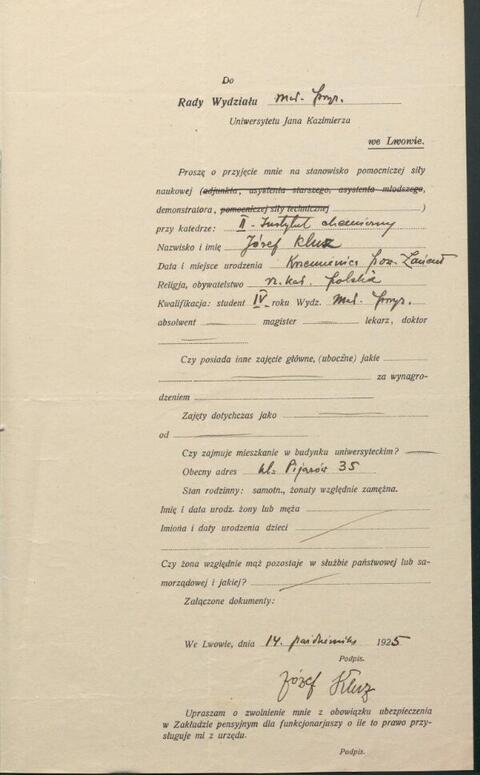 Do
Rady Wydziału mat. przyr.
Uniwersytetu Jana Kazimierza
we Lwowie.
Proszę o przyjęcie mnie na stanowisko pomocniczej siły
naukowej (adjunkta, asystenta starszego, asystenta młodszego,
demonstratora, pomocniczej siły technicznej )
przy katedrze: II. Instytut chemiczny
Nazwisko i imię Józef Klusz
Data i miejsce urodzenia Krzemienica pow. Łańcut
Religja, obywatelstwo rz. kat. polskie
Kwalifikacja: student IV roku Wydz. mat. przyr.
absolwent magister lekarz, doktor
Czy posiada inne zajęcie główne, (uboczne) jakie
za wynagro-
dzeniem
Zajęty dotychczas jako
od
Czy zajmuje mieszkanie w budynku uniwersyteckim?
Obecny adres ul. Pijarów 35
Stan rodzinny: samotn., żonaty względnie zamężna.
Imię i data urodz. żony lub męża
Imiona i daty urodzenia dzieci
Czy żona względnie mąż pozostaje w służbie państwowej lub sa-
morządowej i jakiej?
Załączone dokumenty:
We Lwowie, dnia 14. października 1925
Podpis.
Józef
Upraszam o zwolnienie mnie z obowiązku ubezpieczenia
w Zakładzie pensyjnym dla funkcjonarjuszy o ile to prawo przy-
sługuje mi z urzędu.
Podpis.